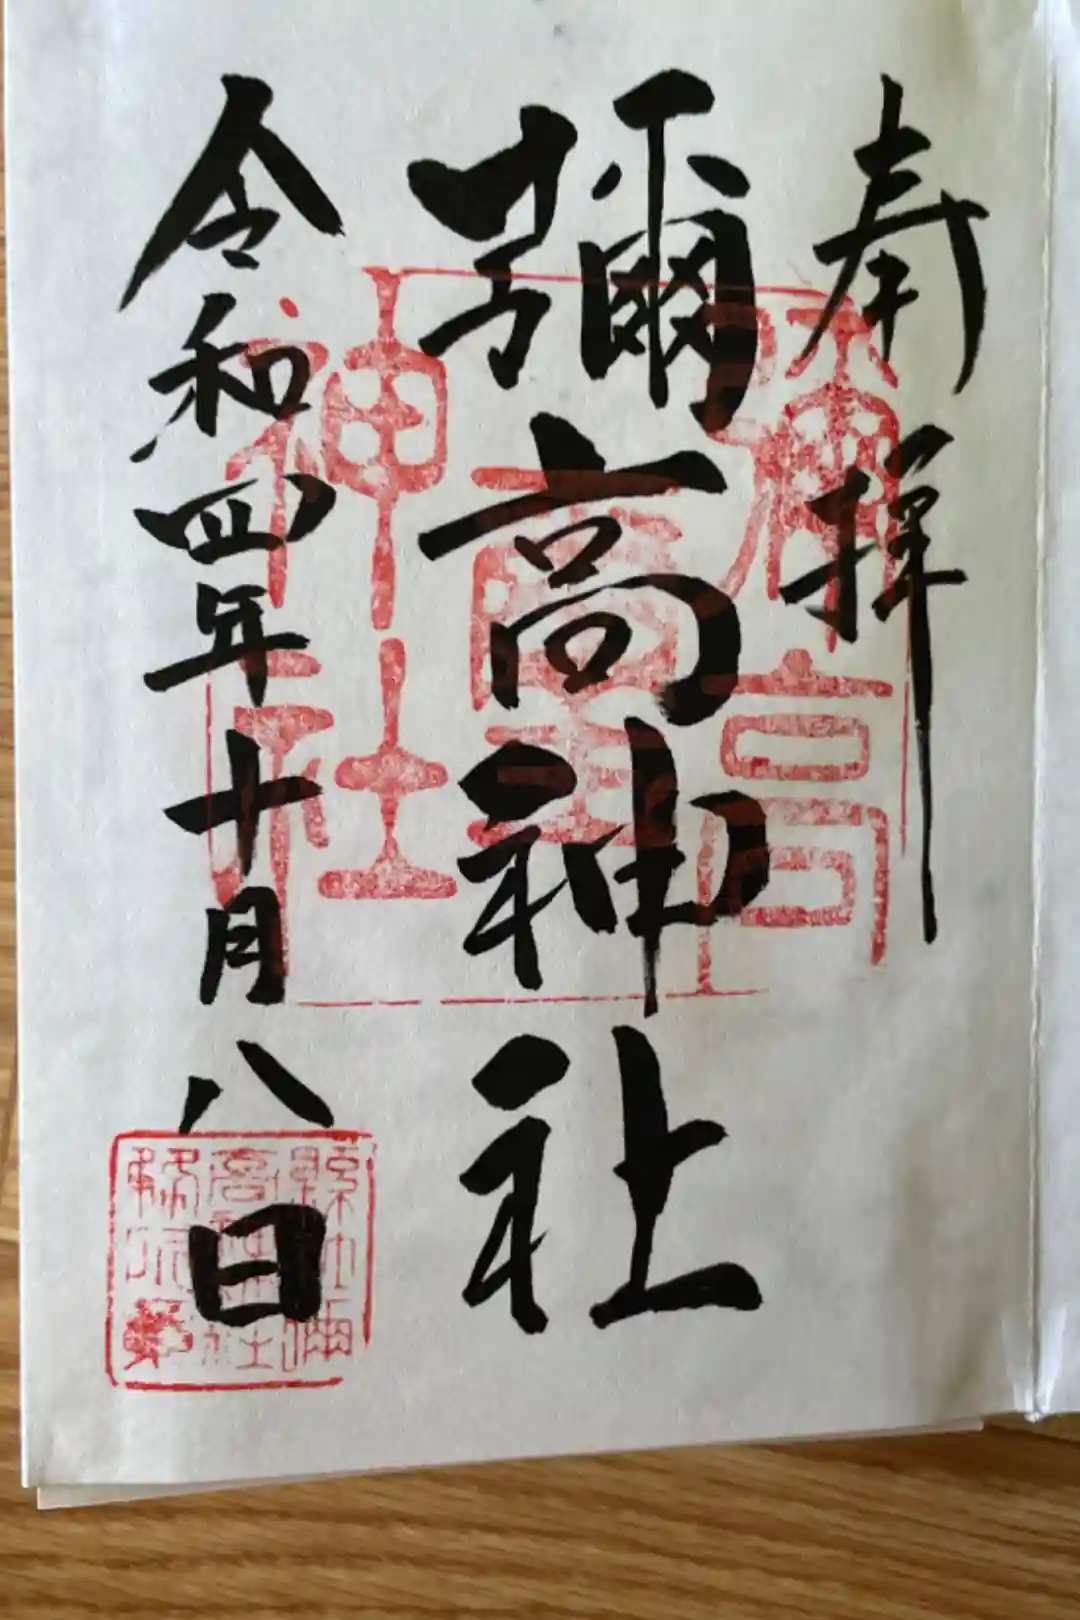 奉拝
彌高神社
令和四年十月八日
彌高
神社
縣社彌
高神社